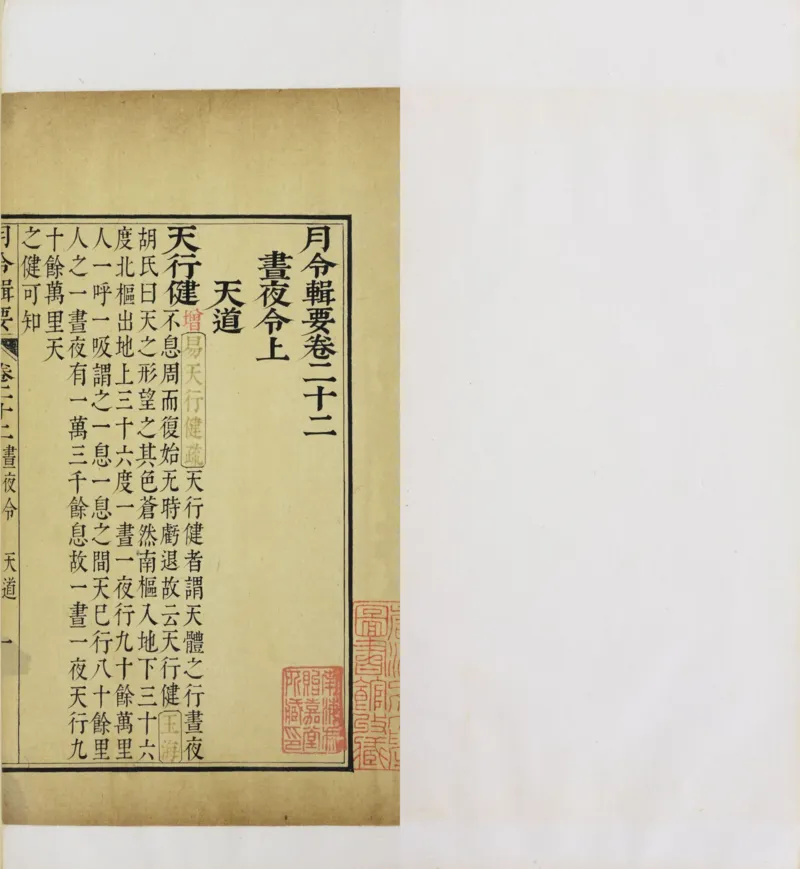 月令輯要卷二十二
晝夜令上
天道
天行健增易天行健疏天行健者謂天體之行晝夜
不息周而復始无時虧退故云天行健玉海
胡氏曰天之形望之其色蒼然南樞入地下三十六
度北樞出地上三十六度一晝一夜行九十餘萬里
人一呼一吸謂之一息一息之間天巳行八十餘里
人之一晝夜有一萬三千餘息故一晝一夜天行九
十餘萬里天
之健可知
月令輯要 卷二十二 晝夜令 天道 一
圖書館收藏